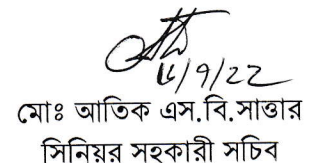 মোঃ আতিক এস.বি.সাত্তার
সিনিয়র সহকারী সচিব